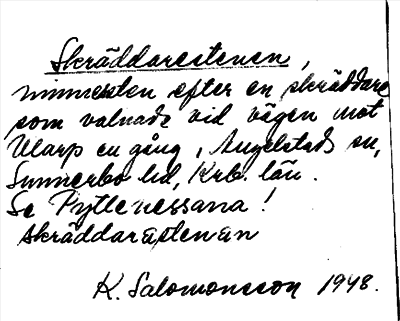 Skräddarestenen,
minnesten efter en skräddare
som valnade vid vägen mot
Ularp en gång, Angelstads sn,
Sunnerbo hd, Krb. län.
Se Pyttenessana!
skräddarastenan
K. Salomonsson 1948.